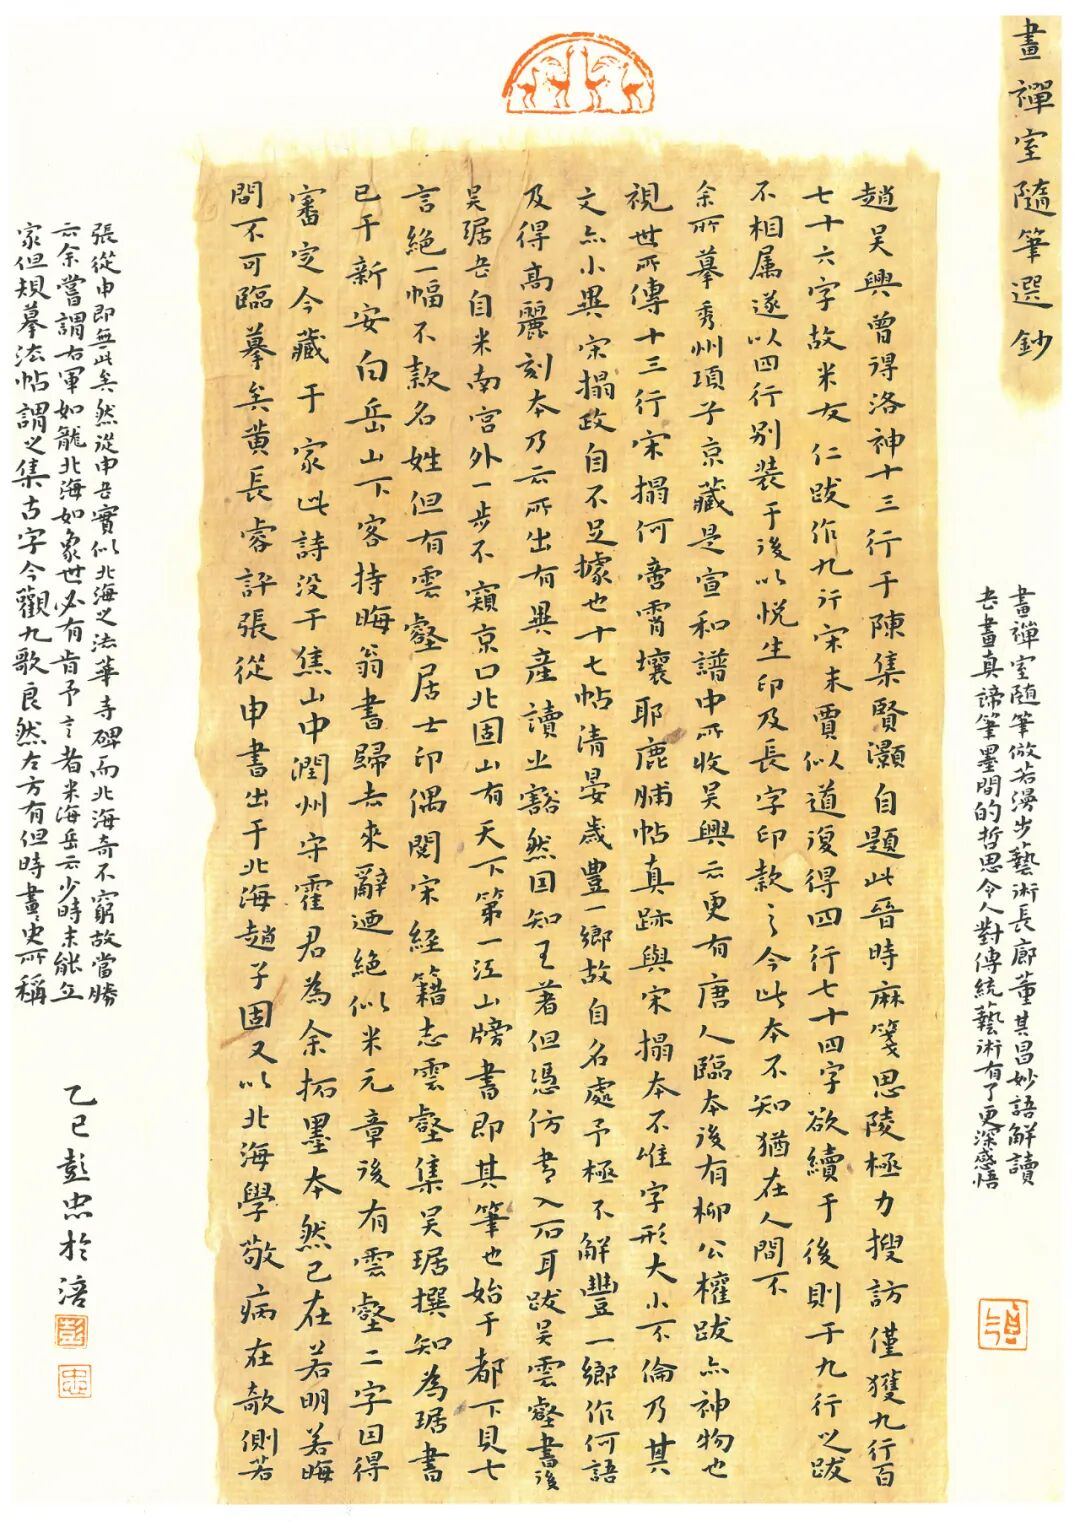 畫禪室隨筆選鈔
畫禪室随筆仿若漫步藝術長廊董其昌妙語解讀
书畫真諦筆墨間的哲思令人對傳統藝術有了更深感悟
趙吴興曾得洛神十三行于陳集賢灝自題此晉時麻箋思陵極力搜訪僅獲九行百
七十六字故米友仁跋作九行宋末賈似道復得四行七十四字欲續于後則于九行之跋
不相属遂以四行别装于後以悦生印及長字印款之今此本不知猶在人間不
余所摹秀州項子京藏是宣和譜中所收吴興云更有唐人臨本後有柳公權跋亦神物也
視世所傳十三行宋搨何啻霄壤耶鹿脯帖真跡與宋搨本不惟字形大小不倫乃其
文亦小異宋搨政自不足據也十七帖清晏歲豊一鄉故自名處予極不解豐一鄉作何語
及得高麗刻本乃云所出有異産讀之豁然因知王著但憑仿书入石耳跋吴雲壑書後
吴琚书自米南宫外一步不窺京口北固山有天下第一江山牓書即其筆也始于都下貝七
言絶一幅不款名姓但有雲壑居士印偶閲宋經籍志雲壑集吴琚撰知為琚書
已于新安白岳山下客持晦翁書歸去來辭迺絶似米元章後有雲壑二字因得
審定今藏于家此詩没于焦山中潤州守霍君為余拓墨本然已在若明若晦
間不可臨摹矣黄長睿評張從申書出于北海趙子固又以北海學敬病在欹側若
張從申即無此矣然從申书實似北海之法華寺碑而北海奇不窮故當勝
云余嘗謂右軍如龍北海如象世必有肯予言者米海岳云少時未能立
家但規摹法帖謂之集古字今觀九歌良然左方有但時畫史所稱
乙巳彭忠於涪
彭
忠